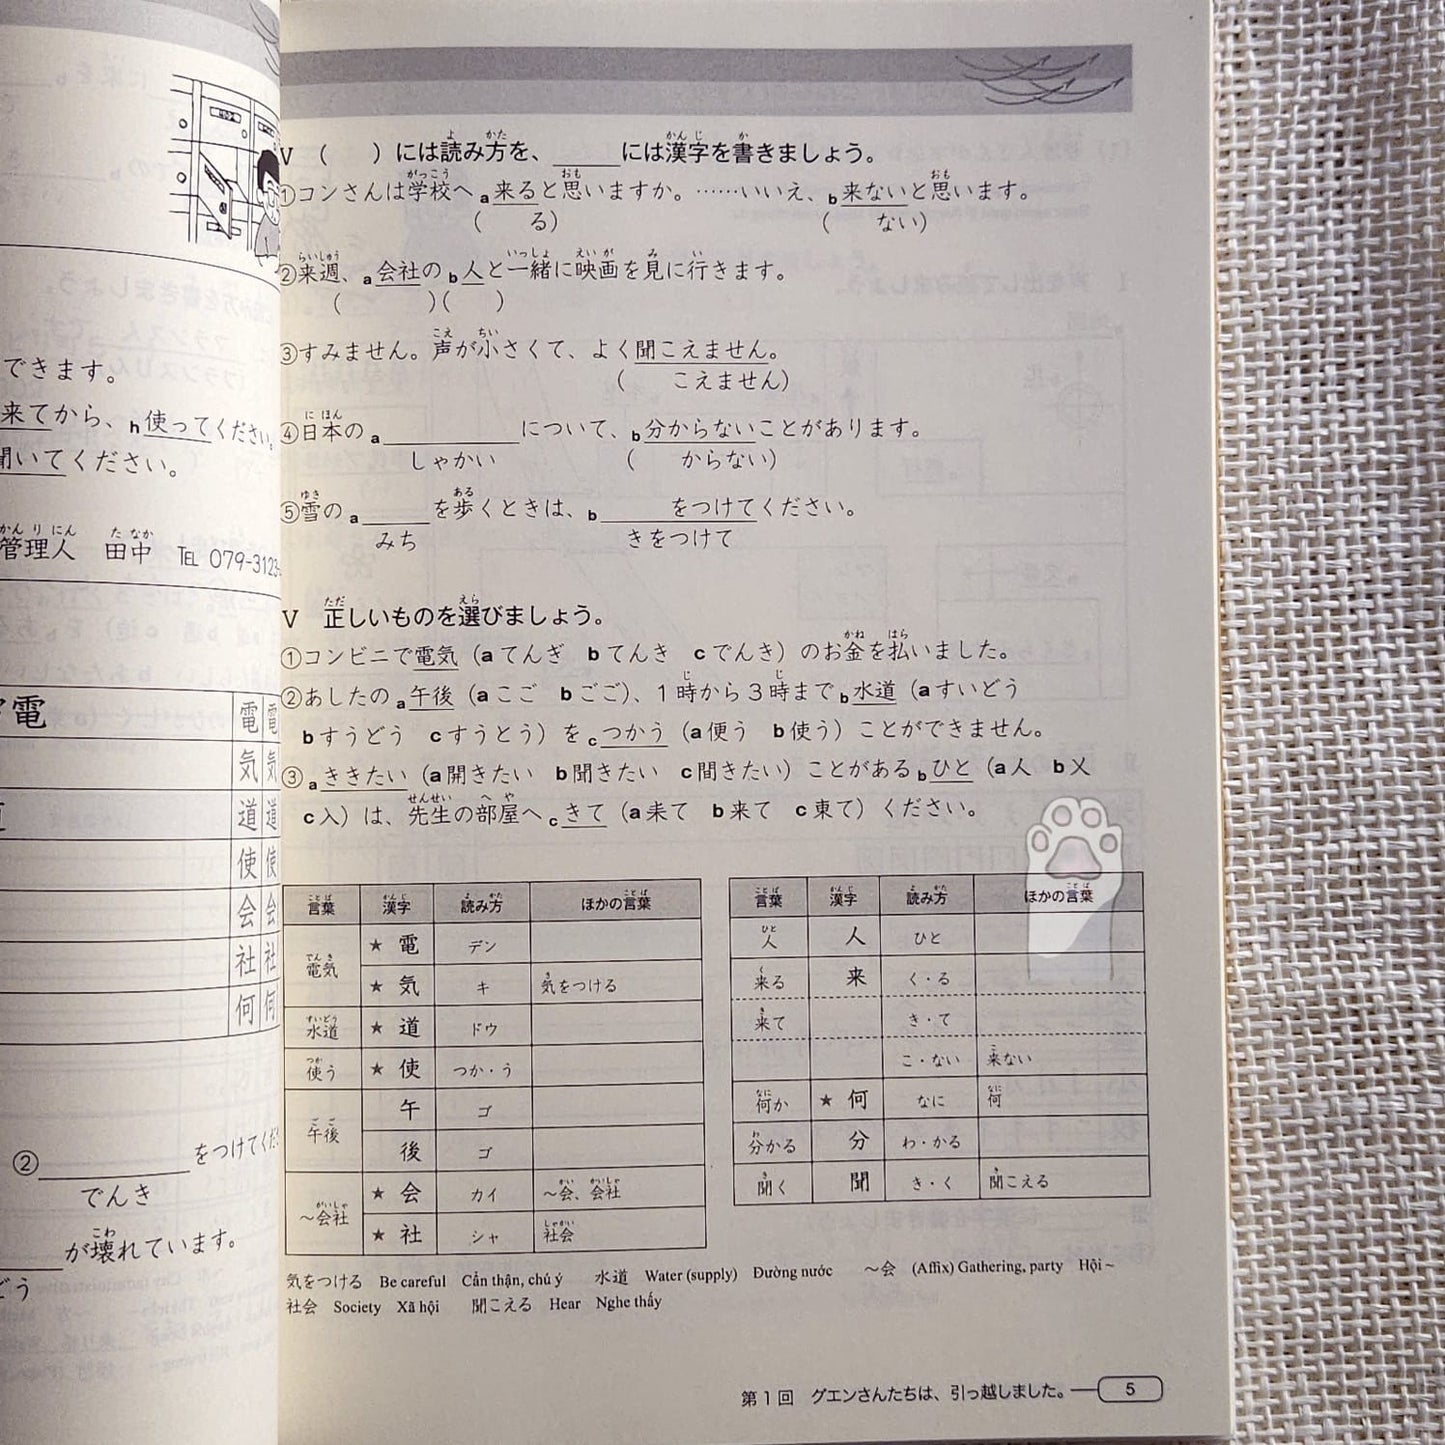 できます。
来てから、h使ってください。
聞いてください。
かん り にん　た なか
管理人　田中　TEL 079-3123-
電　電
気　気
道　道
使　使
会　会
社　社
何　何
②　をつけてくだ
でんき
こわ
が壊れています。
どう
よ　かた　かん じ　か
V （　）には読み方を、＿＿には漢字を書きましょう。
がっこう　おも　おも
①コンさんは学校へ a来ると思いますか。……いいえ、b来ないと思います。
（　る）　（　ない）
らいしゅう　いっしょ　えい が　み　い
②来週、a会社の b人と一緒に映画を見に行きます。
（　）（　）
こえ　ちい
③すみません。声が小さくて、よく聞こえません。
（　こえません）
に ほん
④日本の a＿＿＿について、b分からないことがあります。
しゃかい　（　からない）
ゆき　ある
⑤雪の a＿＿を歩くときは、b＿＿をつけてください。
みち　きをつけて
ただ　えら
V 正しいものを選びましょう。
かね　はら
①コンビニで電気（a てんぎ　b てんき　c でんき）のお金を払いました。
じ　じ
②あしたの a午後（a ここ゚　b ごご）、1時から3時まで b水道（a すいどう
b すうどう　c すうとう）を cつかう（a 便う　b 使う）ことができません。
③ aききたい（a 開きたい　b 聞きたい　c 間きたい）ことがある bひと（a 人　b 乂
せんせい　へ や
c 入）は、先生の部屋へ cきて（a 耒て　b 来て　c 東て）ください。
ことば　かん じ　よ　かた　ことば
言葉　漢字　読み方　ほかの言葉
でん き
電気　★ 電　デン
き
★ 気　キ　気をつける
すいどう
水道　★ 道　ドウ
つか
使う　★ 使　つか・う
ご ご
午後　午　ゴ
後　ゴ
がいしゃ　かい　かいしゃ
～会社　★ 会　カイ　～会、会社
しゃかい
★ 社　シャ　社会
ことば　かん じ　よ　かた　ことば
言葉　漢字　読み方　ほかの言葉
ひと
人　人　ひと
く
来る　来　く・る
き
来て　き・て
こ
こ・ない　来ない
なに　なに
何か　★ 何　なに　何
わ
分かる　分　わ・かる
き　き
聞く　聞　き・く　聞こえる
気をつける　Be careful　Cẩn thận, chú ý　水道　Water (supply)　Đường nước　～会　(Affix) Gathering, party　Hội ~
社会　Society　Xã hội　聞こえる　Hear　Nghe thấy
第1回　グエンさんたちは、引っ越しました。　5